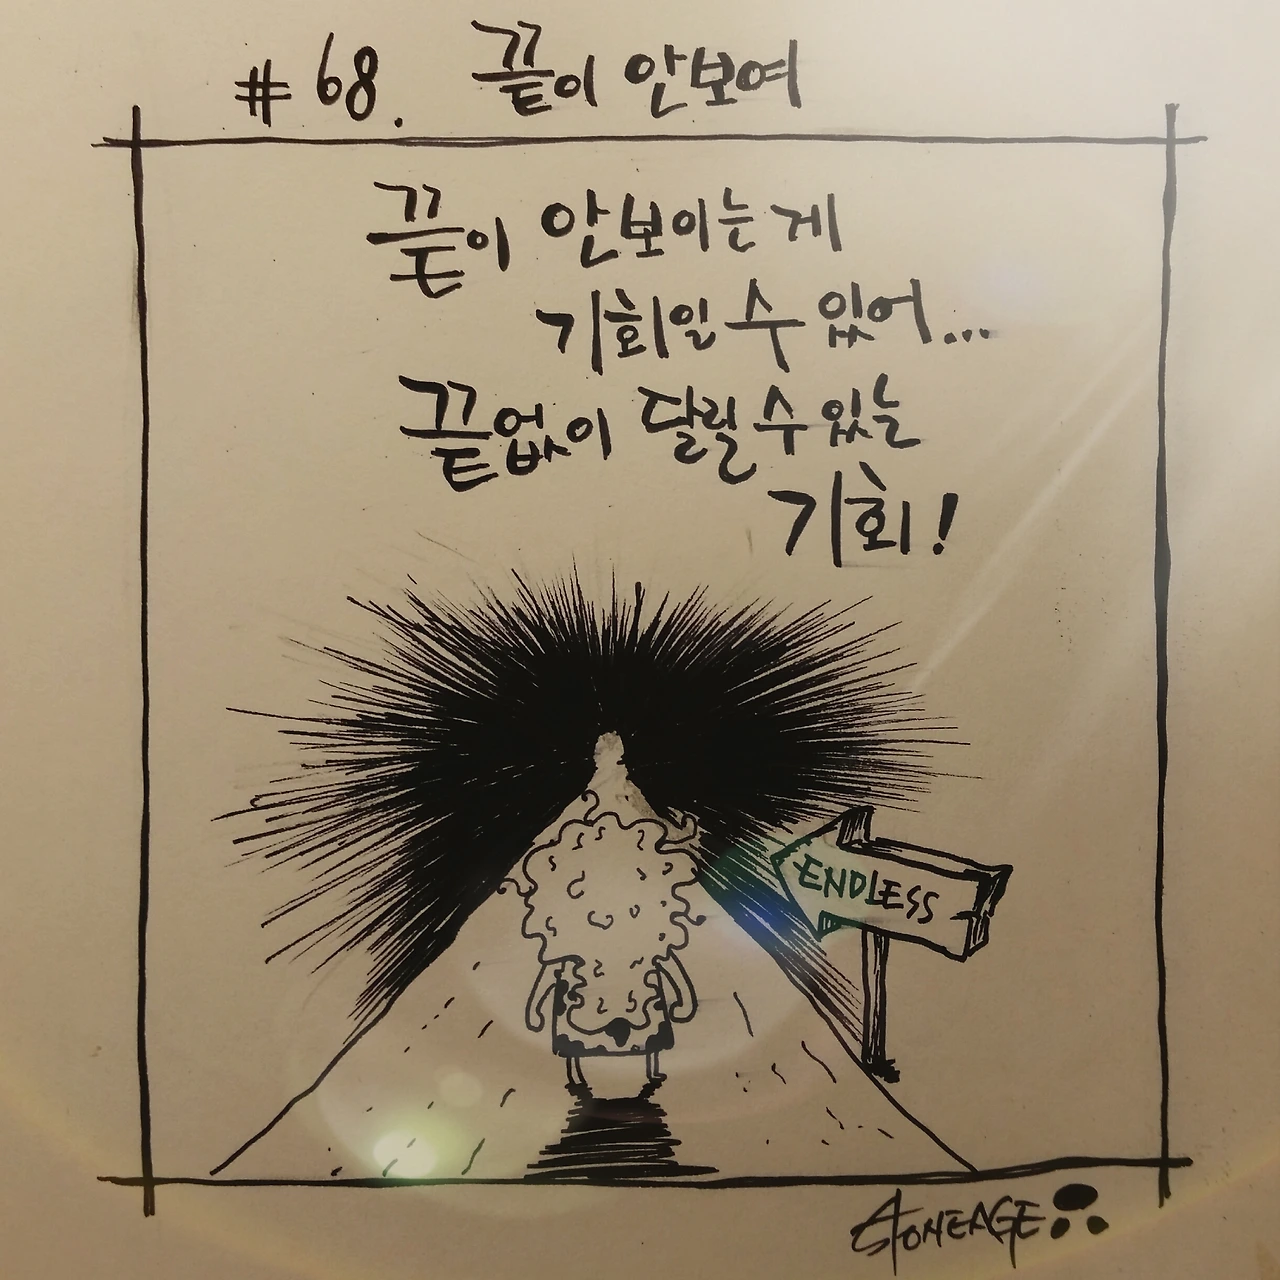 #68. 끝이 안보여
끝이 안보이는 게
기회일 수 있어...
끝없이 달릴 수 있는
기회!
ENDLESS
STONEAGE